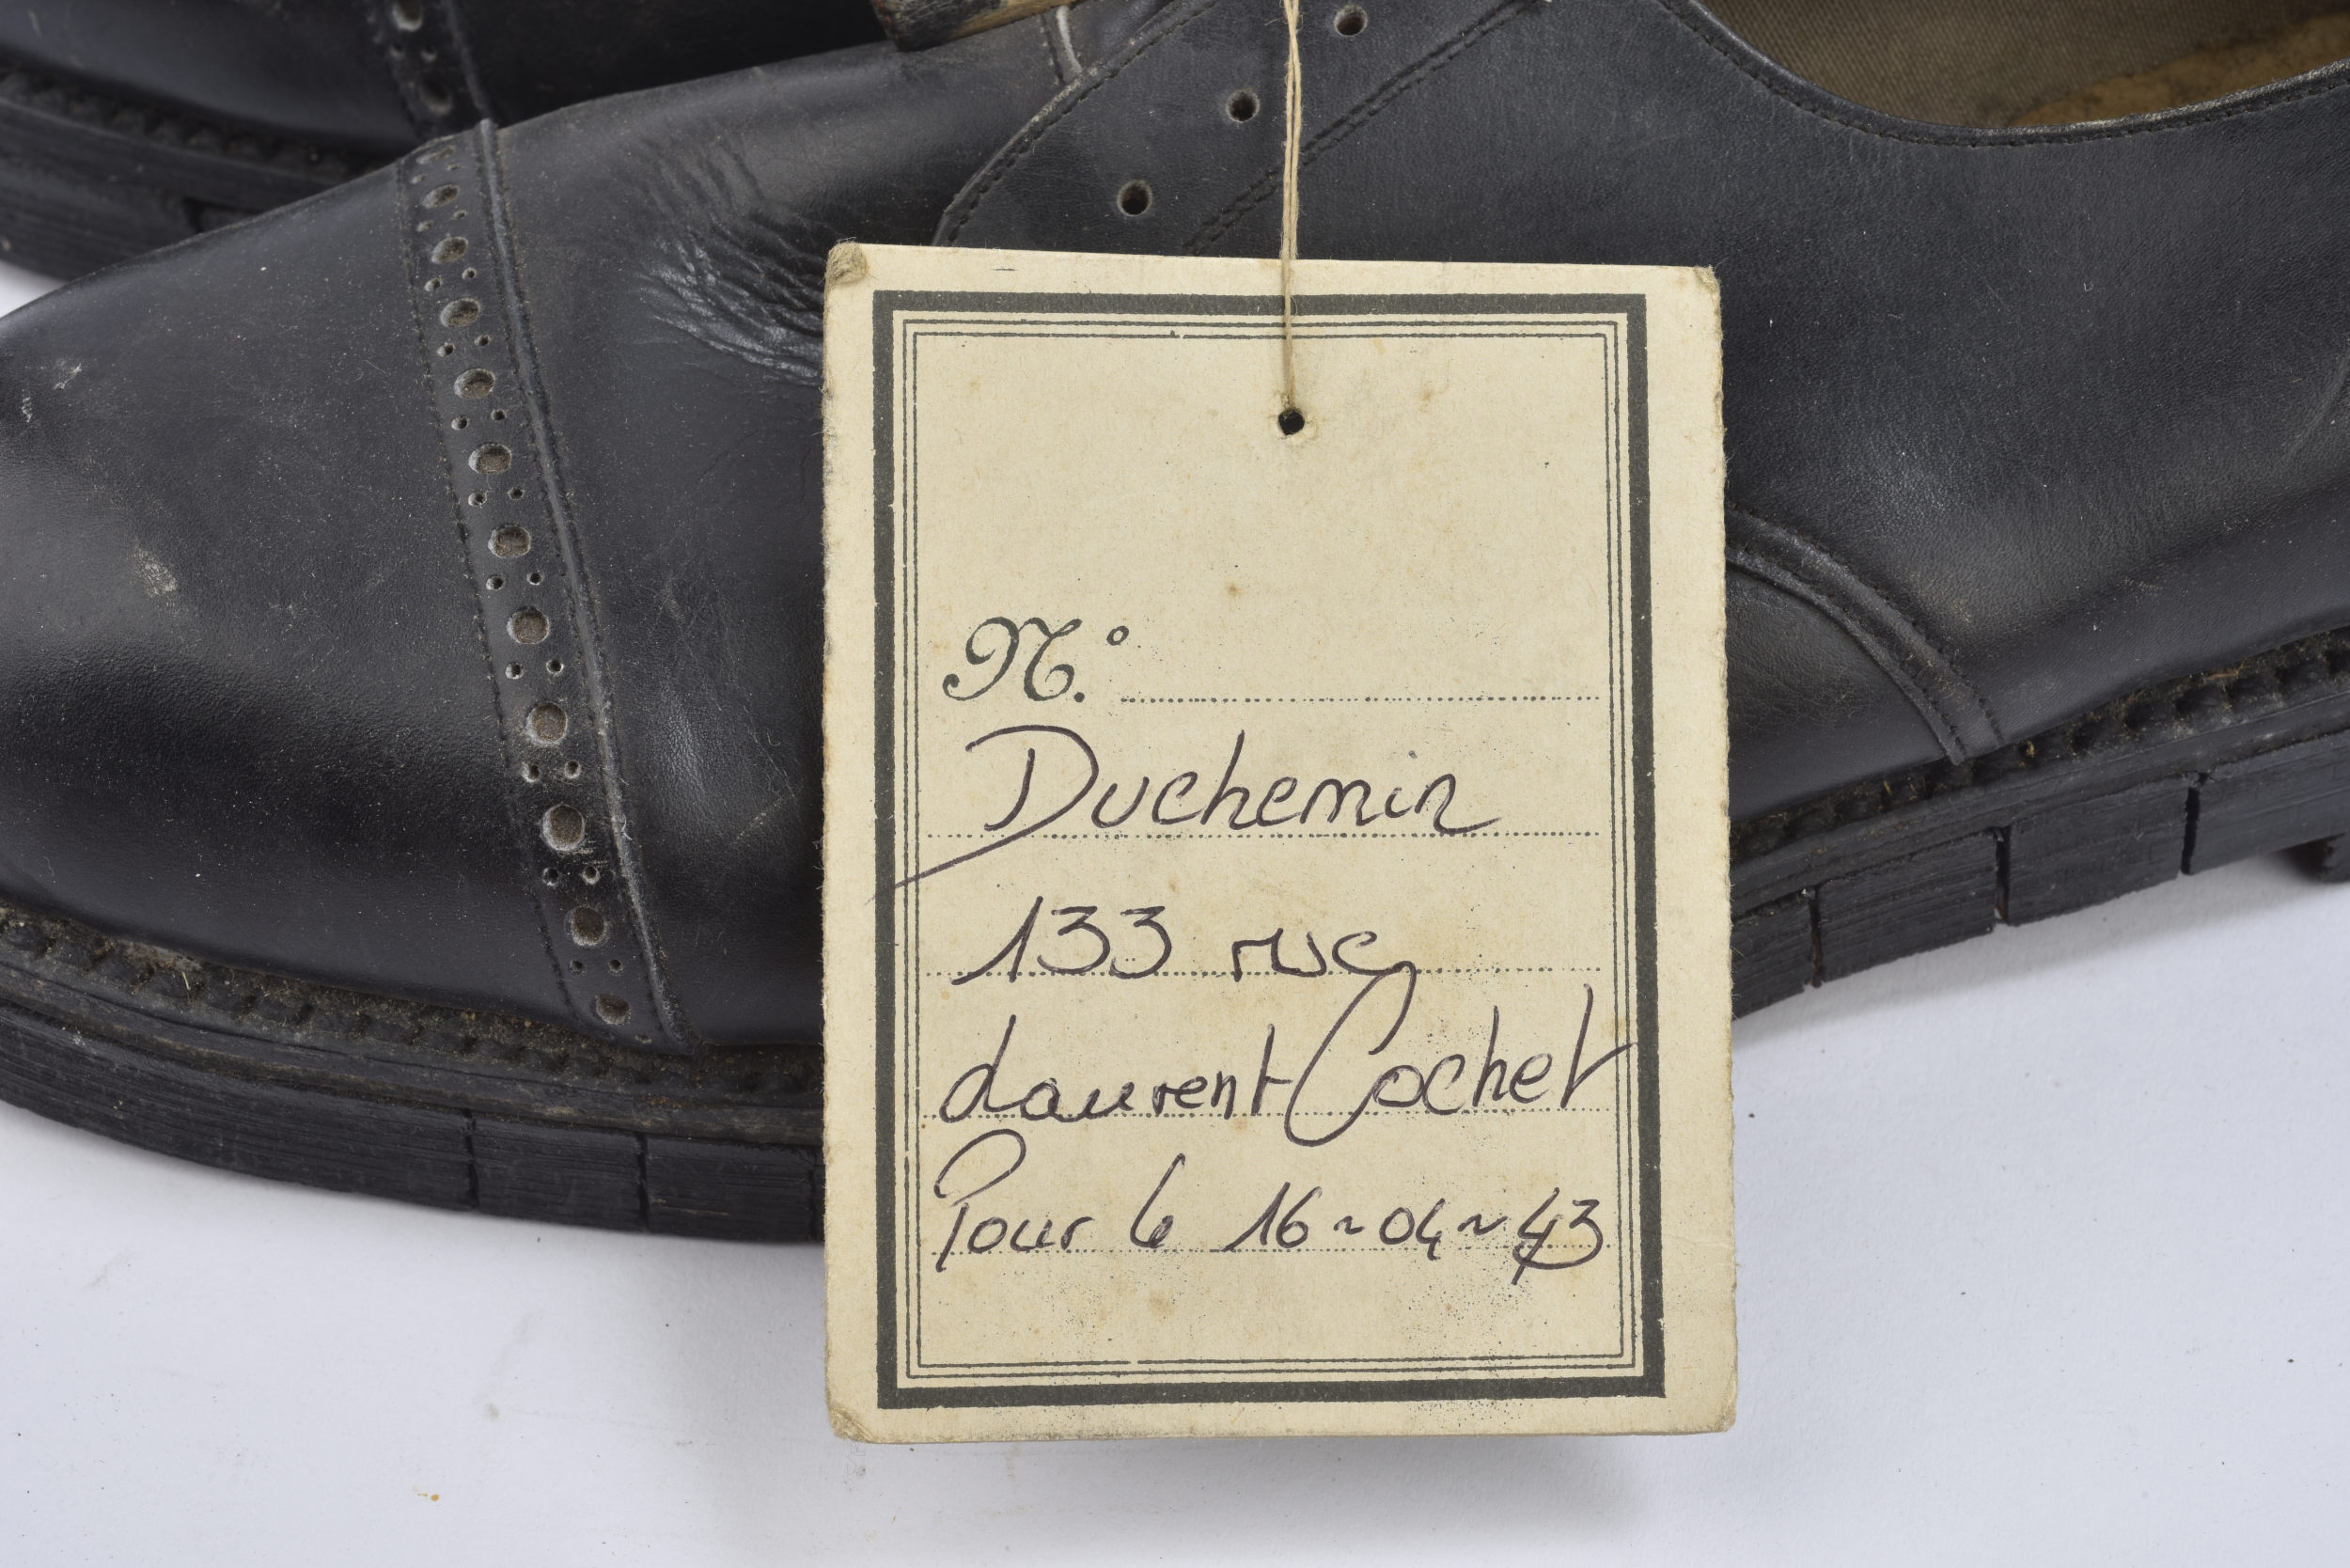 N.°
Duchemin
133 rue
Laurent Cochet
Pour le 16~04~43